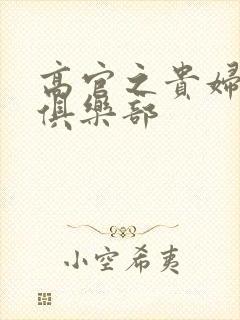 高官之貴婦
俱樂部
小空希夷